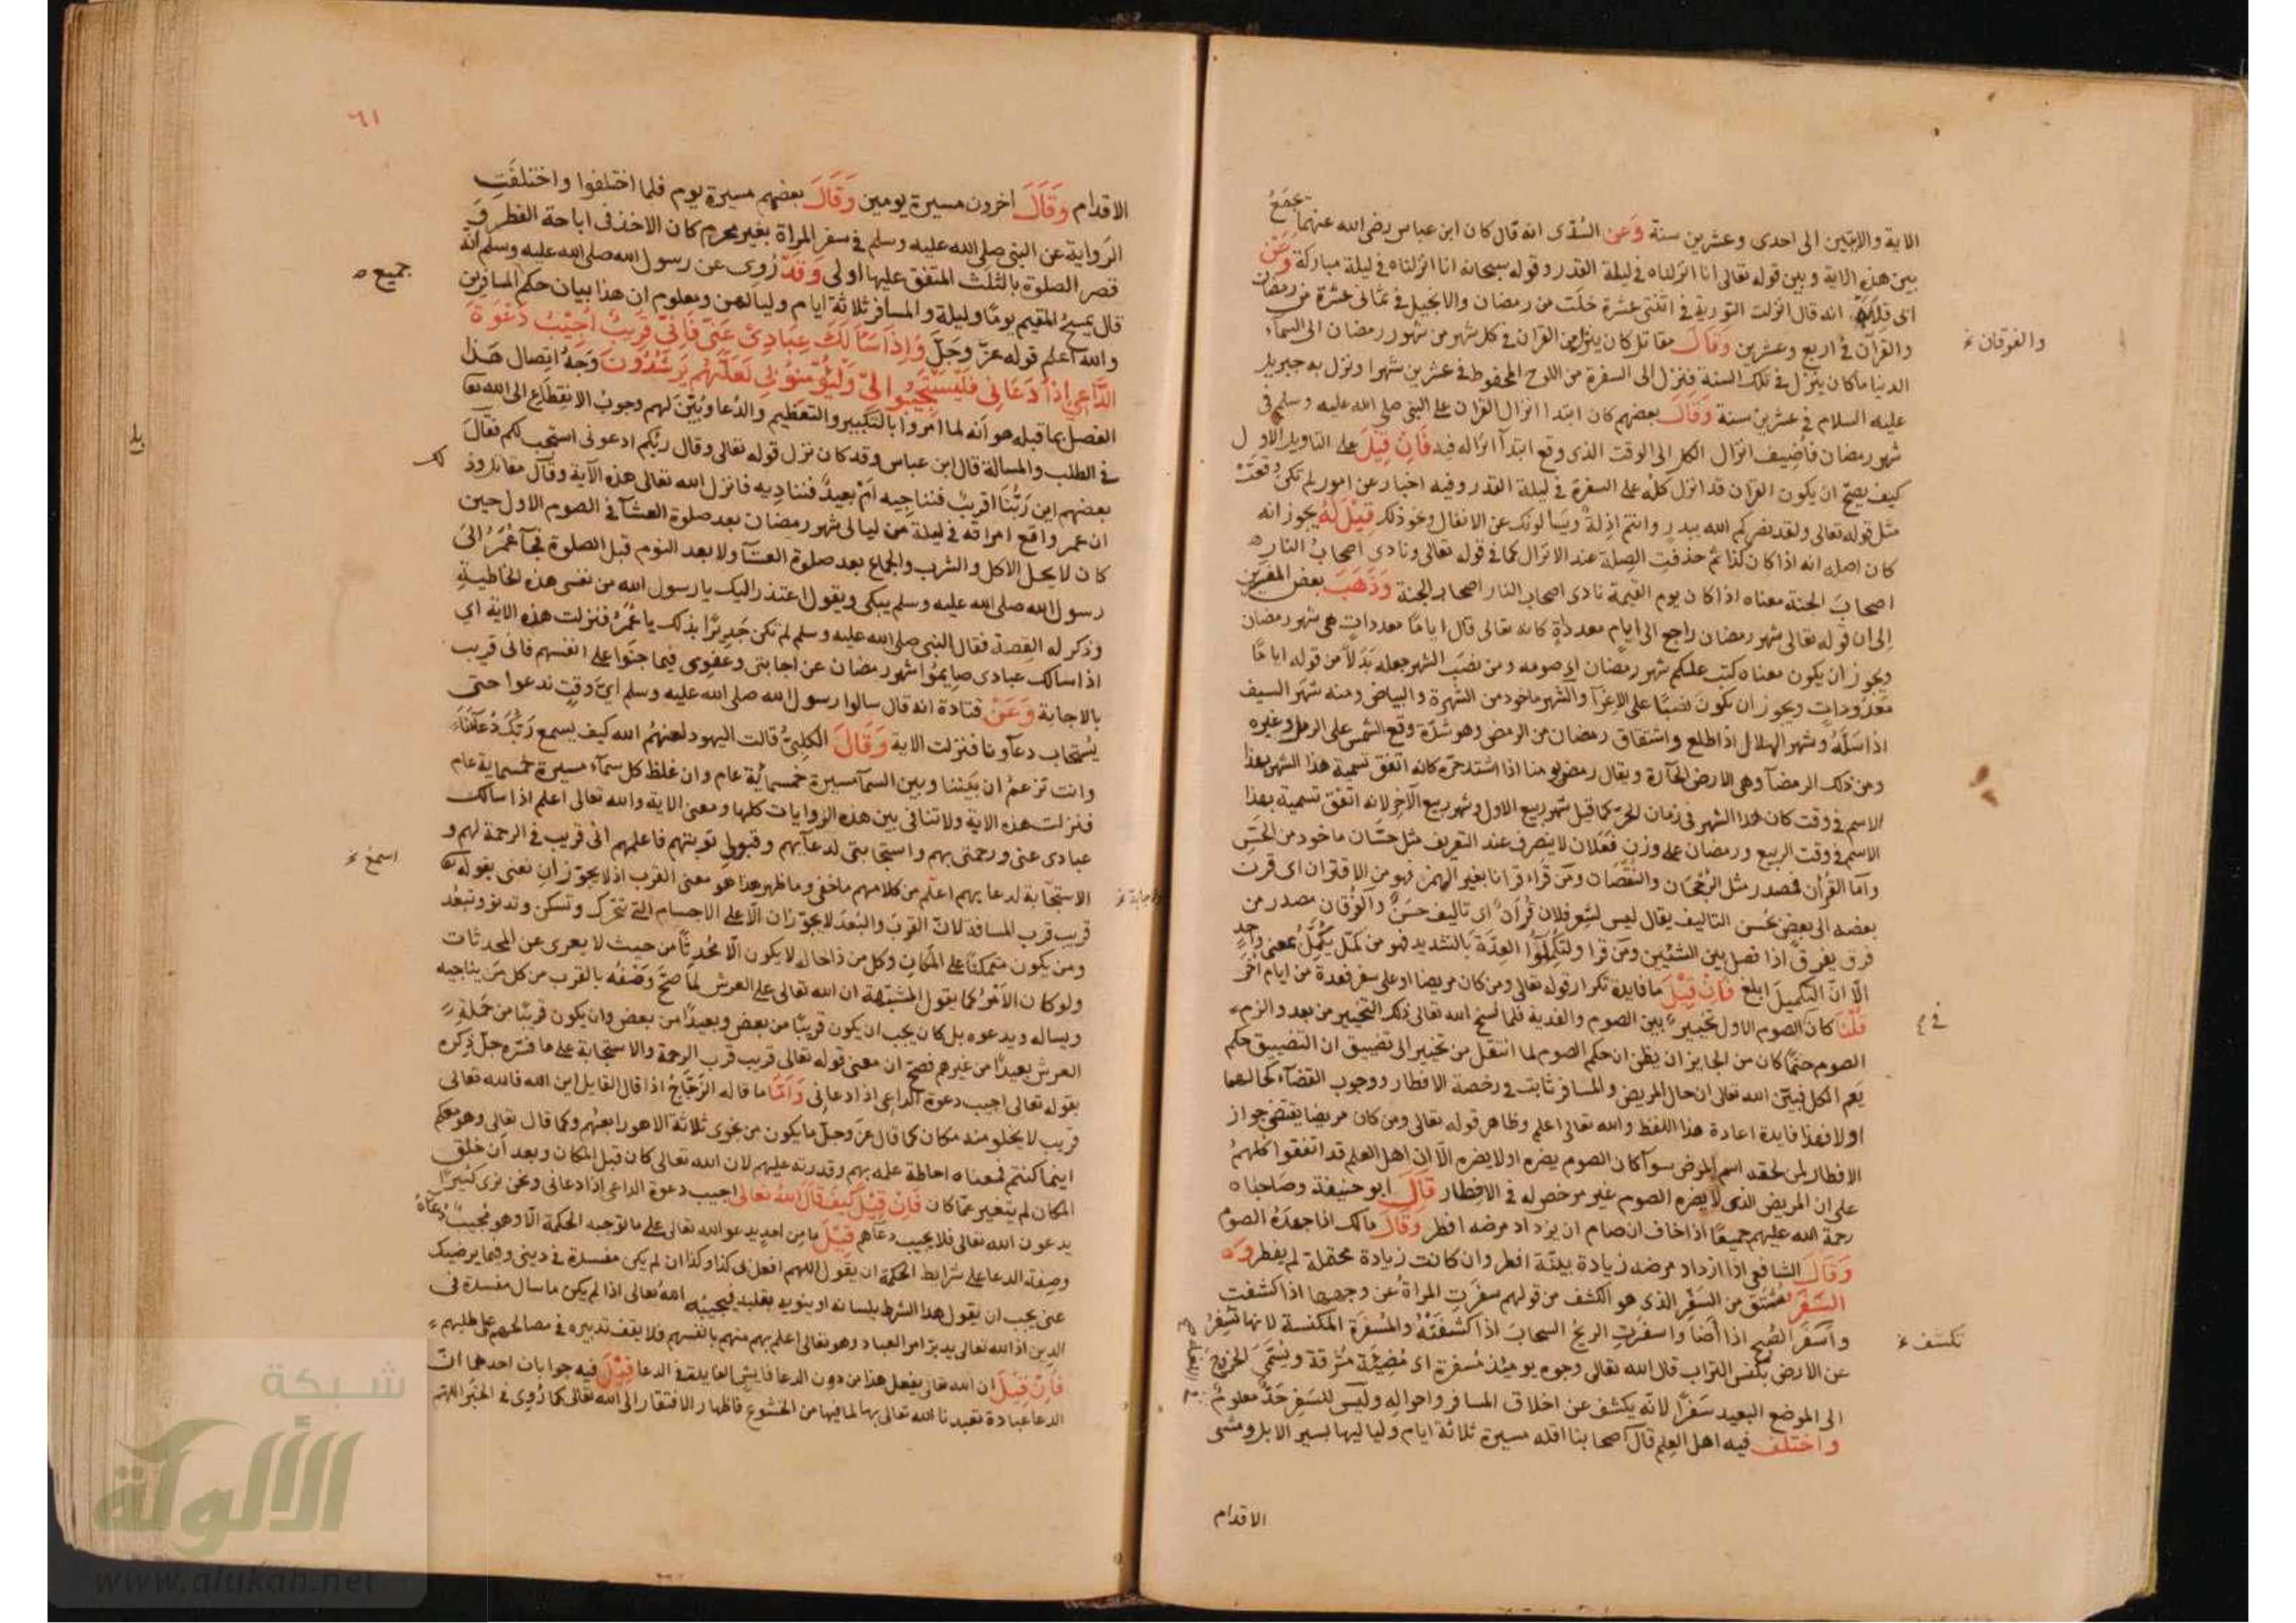 الاية والايتين الى احدى وعشرين سنة وَعَن السُدّى انه قال كان ابن عباس رضى الله عنهما يجمَعُ
بين هذه الاية وبين قوله تعالى انا انزلناه فى ليلة القدر وقوله سبحانه انا انزلناه فى ليلة مباركة وَعَن
ابى قلابة انه قال انزلت التورية فى اثنتى عشرة خلَت من رمضان والانجيل فى ثمانى عشرة من رمضان
والقرآن فى اربع وعشرين وَقَالَ مقاتل كان ينزل من القران فى كل شهر من شهور رمضان الى السمآء
والفرقان
الدنيا ما كان ينزل فى تلك السنة فنزل الى السفرة من اللوح المحفوظ فى عشرين شهرا ونزل به جبريل
عليه السلام فى عشرين سنة وَقَالَ بعضهم كان ابتدا انزال القران على النبى صلى الله عليه وسلم فى
شهر رمضان فاُضِيف انزال الكل الى الوقت الذى وقع ابتدآ انزاله فيه فَاِنْ قِيْلَ على التاويل الاول
كيف يصِحّ ان يكون القران قد انزل كلّه على السفرة فى ليلة القدر وفيه اخبار عن امور لم تكن وقعَتْ
مثل قوله تعالى ولقد نصركم الله ببدر وانتم اذِلة ويسالونك عن الانفال ونحو ذلك قِيْلَ لَهُ يجوز انه
كان اصله انه اذا كان كذا ثم حذفتِ الصِلة عند الانزال كما فى قوله تعالى ونادى اصحابُ النار
اصحابَ الجنة معناه اذا كان يوم القيمة نادى اصحاب النار اصحاب الجنة وَذَهَبَ بعض المفسرين
الى ان قوله تعالى شهر رمضان راجع الى ايام معدداةٍ كانه تعالى قال اياما معدداتٍ هى شهر رمضان
ويجوز ان يكون معناه كتب عليكم شهر رمضان اى صومه ومن نصَبَ الشهر جعله بَدَلاً من قوله اياما
مَعدُوداتٍ ويجوز ان يكونَ نصبًا على الاِغرآ والشهر ماخود من الشهرة والبياض ومنه شهَر السيف
اذا سَلَّهُ وشهر الهلال اذا طلع واشتقاق رمضان من الرمض وهو شدّة وقع الشمس على الرمل وغيره
ومن ذلك الرمضآ وهى الارض الحآرة ويقال رمض يومنا اذا اشتد حرّه كانه اتفق تسمية هذا الشهر بهذا
الاسم فى وقت كان هذا الشهر فى زمان الحرّ كما قيل شهر ربيع الاول وشهر ربيع الآخِر لانه اتفق تسمية بهذا
الاسم فى وقت الربيع ورمضان على وزن فَعَلان لا ينصرف عند التعريف مثل حسَّان ماخود من الحَسِّ
وامّا القُرآن فمصدر مثل الرُجْحَان والنُقصَان ومَنْ قَراءَ قرانا بغير الهمز فهو من الاقتران اى قرنت
بعضه الى بعضٍ بحُسن التاليف يقال ليس لشِعرِ فلان قُرآن اى تاليف حسَنٌ والفُرقان مصدر من
فرق يفرق اذا فصل بين الشيئين ومَن قرا ولتُكمِّلُوا العِدّةَ بالتشديد فهو من كمّل يُكَمِّلُ بمعنى واحدٍ
الّا انّ التكميلَ ابلغ فَاِنْ قِيْلَ ما فايدة تكرار قوله تعالى ومن كان مريضا او على سفر فعدة من ايام اُخَر
قُلْنَا كان الصوم الاول تخييرٌ بين الصوم والفدية فلما نسخ الله تعالى ذلك التخيير من بعد والزم
الصوم حتمًا كان من الجايز ان يظن ان حكم الصوم لما انتقل من تخيير الى تضييق ان التضييق حكم
يَعم الكل فبيّن الله تعالى ان حال المريض والمسافر ثابت فى رخصة الافطار ووجوب القضآء كحالهما
اولا فهذا فايدة اعادة هذا اللفظ والله تعالى اعلم وظاهر قوله تعالى ومن كان مريضا يقتضى جواز
الافطار لمن لحقه اسم المرض سوآ كان الصوم يضره اولا يضره الّا ان اهل العلم قد اتفقوا كلهمُ
على ان المريض الذى لا يضره الصوم غير مرخص له فى الافطار قَالَ ابو حنيفة وصَاحباه
رحمة الله عليهم جميعًا اذا خاف ان صام ان يزداد مرضه افطر وَقَالَ مالك اذا جهدَهُ الصومُ
وَقَالَ الشافعى اذا ازداد مرضه زيادة بيّنة افطر وان كانت زيادة محتملة لم يفطر
السَّفَرُ مُشتَق من السَفر الذى هو الكشف من قولهم سفرَتِ المراةُ عن وجهها اذا كشفت
واَسفَرَ الصُبح اذا أضا واسفرَتِ الريحُ السحابَ اذا كشفَتْهُ والمُسفرَة المكنسة لانها تُسفِرُ
تكشف
عن الارض بكنس التراب قال الله تعالى وجوه يومئذ مُسفرة اى مُضِيئَة مُشرقة ويُسَمَّى الخروج
الى الموضع البعيد سَفرًا لانّه يكشف عن اخلاق المسافر واحواله ولَيسَ للسَفرِ حَدٌّ معلومٌ
واختلف فيه اهل العِلم قال اصحابنا اقله مسيرة ثلاثة ايام ولياليها بسير الابل ومشى
الاقدام
٦١
الاقدام وَقَالَ اخرون مسيرة يومين وَقَالَ بعضهم مسيرة يوم فلما اختلفوا واختلفَتِ
الرواية عن النبى صلى الله عليه وسلم فى سفر المراة بغير محرم كان الاخذ فى اباحة الفطر وَ
قصر الصلوة بالثلَث المتفق عليها اولى وَقَدْ رُوى عن رسول الله صلى الله عليه وسلم انّه
جميع
قال يمسحُ المقيم يومًا وليلة والمسافر ثلاثة ايام ولياليهن ومعلوم ان هذا بيان حكم المسافرين
والله اعلم قوله عزّ وجَلّ وَاِذَا سَاَلَكَ عِبَادِىْ عَنّى فَاِنّى قَرِيبٌ اُجِيْبُ دَعْوَةَ
الدَّاعِى اِذَا دَعَانِى فَلْيَسْتَجِيْبُوا لِىْ وَلْيُؤْمِنُوْا بِى لَعَلَّهُمْ يَرْشُدُوْنَ وَجهُ اتِصال هذا
الفصل بما قبله هو انّه لما امرُوا بالتكبير والتعظيم والدُعا وبُيّنَ لهم وجوبُ الانقِطاع الى الله تعا
فى الطلب والمسالة قال ابن عباس وقد كان نزل قوله تعالى وقال ربّكم ادعونى استجب لكم فقالَ
بعضهم اين رَبُّنَا اقريبٌ فنناجِيه اَمْ بعيدٌ فننادِيه فانزل الله تعالى هذه الآية وقال مقاتل وذلك
ان عمر واقع امراته فى ليلة من ليالى شهر رمضان بعد صلوة العشآ فى الصوم الاول حين
كان لا يحل الاكل والشرب والجماع بعد صلوة العشآ ولا بعد النوم قبل الصلوة فجآ عُمَرُ الى
رسول الله صلى الله عليه وسلم يبكى ويقول اعتذر اليك يا رسول الله من نفسى هذه الخاطيةِ
وذكر له القِصة فقال النبى صلى الله عليه وسلم لم تكن جَديرًا بذلك يا عُمَرُ فنزلت هذه الاية اى
اذا سالك عبادى صايمُوا شهر رمضان عن اجابتى وعفوى فيما جنَوا على انفسهم فانى قريب
بالاجابة وَعَنْ قتادة انه قال سالوا رسول الله صلى الله عليه وسلم اىّ وقتٍ ندعوا حتى
يُستجاب دعآونا فنزلت الاية وَقَالَ الكلبىُّ قالت اليهود لعنهُم الله كيف يسمع رَبُّكَ دُعآءَنا
وانت تزعمُ ان بيننا وبين السمآ مسيرة خمسمائة عام وان غلظ كل سمآء مسيرة خمسماية عام
فنزلت هذه الاية ولا تنافى بين هذه الروايات كلها ومعنى الاية والله تعالى اعلم اذا سالك
عبادى عنى ورحمتى بهم واستجابتى لدعآيهم وقبولى توبتهم فاعلمهم انى قريب فى الرحمة لهم و
الاستجابة لدعايهم اعلَم من كلامهم ما خفى وما ظهر هذا هو معنى القرب اذ لا يجوز ان نعنى بقوله تعا
اسمع
قريب قرب المسافة لانّ القربَ والبُعدَ لا يجوزان الّا على الاجسام التى تتحرك وتسكن وتدنو وتبعُد
ومن يكون متمكنًا على المكان وكل من ذا حاله لا يكون الّا مُحْدثًا من حيث لا يعرى عن المحدثات
ولو كان الاَمْرُ كما يقول المشبّهة ان الله تعالى على العرش لمَا صحّ وَصْفُه بالقرب من كل مَن يناجيه
ويساله ويدعوه بل كان يجب ان يكون قريبًا من بعض وبعيدًا من بعض وان يكون قريبًا من حَملةِ
العرش بعيدًا من غيرهم فصَحّ ان معنى قوله تعالى قريب قرب الرحمة والاستجابة على ما فسّره جلّ ذِكره
بقوله تعالى اجيب دعوة الداعى اذا دعانى وَامّا ما قاله الزَجّاجُ اذا قال القايل اين الله فالله تعالى
قريب لا يخلو منه مكان كما قال عزّ وجلّ ما يكون من نجوى ثلاثة الا هو رابعهُم وكما قال تعالى وهو معكم
اينما كنتم فمعناه احاطة علمه بهم وقدرته عليهم لان الله تعالى كان قبل المكان وبعد اَن خلق
المكان لم يتغير عمّا كان فَاِنْ قِيْلَ كَيفَ قَالَ اللهُ تعالى اجيب دعوة الداعى اذا دعانى ونحن نرى كثيرًا
يدعون الله تعالى فلا يجيب دعآهم قِيْلَ ما مِن احدٍ يدعو الله تعالى على ما توجبه الحكمة الّا وهو مُجيبٌ دُعاهُ
وصِفة الدعا على شرايط الحكمة ان يقول اللهم افعل لى كذا وكذا ان لم يكن مفسدة فى دينى وفيما يرضيك
عنى يجب ان يقول هذا الشرط بلسانه او ينويه بقلبه فيجيبُه اللهُ تعالى اذا لم يكن ما سال مفسدة فى
الدين اذ الله تعالى يدبّر امر العباد وهو تعالى اعلم بهم منهم بانفسهم فلا يقف تدبيره فى مصالحهم على طلبهم
فَاِنْ قِيْلَ ان الله تعالى يفعل هذا من دون الدعا فايش الفايدة فى الدعا قِيْلَ فيه جوابان احدهما انّ
الدعا عبادة تعبدنا الله تعالى بها لما فيها من الخشوع واظهار الافتقار الى الله تعالى كما رُوى فى الخبر اللهم
شبكة
الألوكة
www.alukah.net